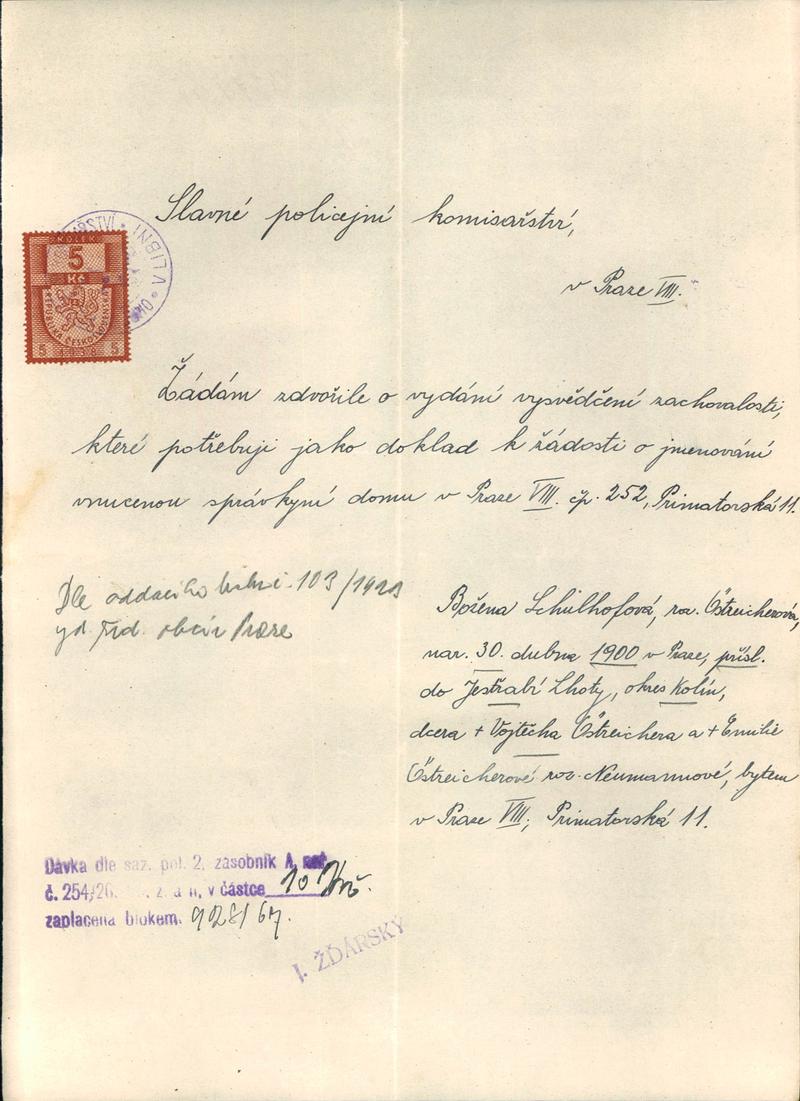 Slavné policejní komisařství,
v Praze VIII.
KOLEK
5
Kč
REPUBLIKA ČESKOSLOVENSKÁ
5 5
V LIBNI
Žádám zdvořile o vydání vysvědčení zachovalosti,
které potřebuji jako doklad k žádosti o jmenování
vnucenou správkyní domu v Praze VIII. čp. 252, Primatorská 11.
Dle oddacího listu č. 103/1923
Božena Schulhofová, roz. Östreicherová,
nar. 30. dubna 1900 v Praze, přísl.
do Jestřabí Lhoty, okres Kolín,
dcera + Vojtěcha Östreichera a + Emilie
Östreicherové roz. Neumannové, bytem
v Praze VIII., Primatorská 11.
Dávka dle saz. pol. 2, zásobník A,
č. 254/26. z. a n, v částce 10 Kč.
zaplacena blokem. 928/67.
J. ŽĎÁRSKÝ